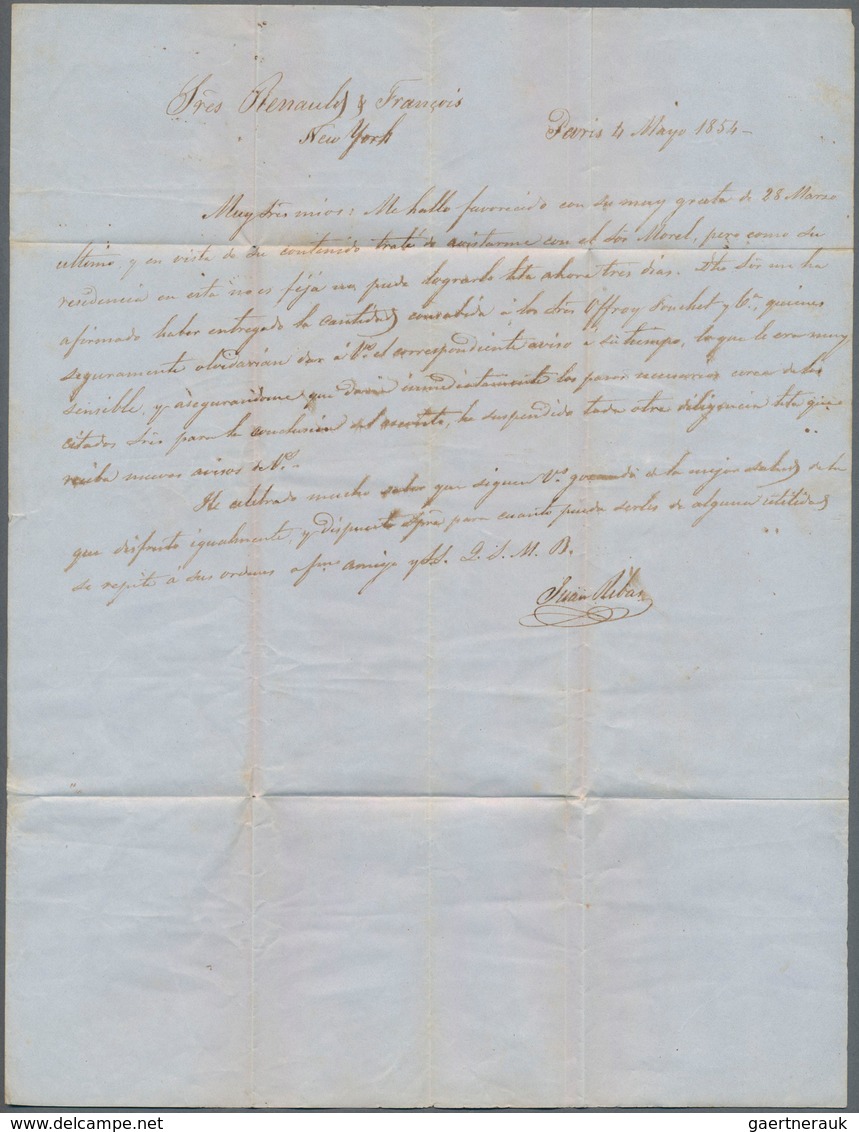 Sres Renauld & François
New York
Paris 4 Mayo 1854
Muy Sres mios: Me hallo favorecido con su muy grata de 28 Marzo
ultimo, y en vista de su contenido traté de avistarme con el Sor Morel, pero como su
residencia en esta no es fija no pude lograrlo hta ahora tres dias. Dho Sor me ha
afirmado haber entregado la cantidad consabida á los Sres Offroy Ponchet y Ca, quienes
seguramente olvidarian dar á Vs el correspondiente aviso a su tiempo, lo que le era muy
sensible, y asegurandome que daria inmediatamente los pasos necesarios cerca de los
citados Sres para la conclusion del asunto, he suspendido toda otra diligencia hta que
reciba nuevos avisos de Vs.
He celebrado mucho saber que siguen Vs gozando de la mejor salud, de la
que disfruto igualmente, y dispuesto spre para cuanto pueda serles de alguna utilidad
se repite á sus ordenes afmo amigo y SS. Q. S. M. B.
Juan Ribas
gaertnerauk